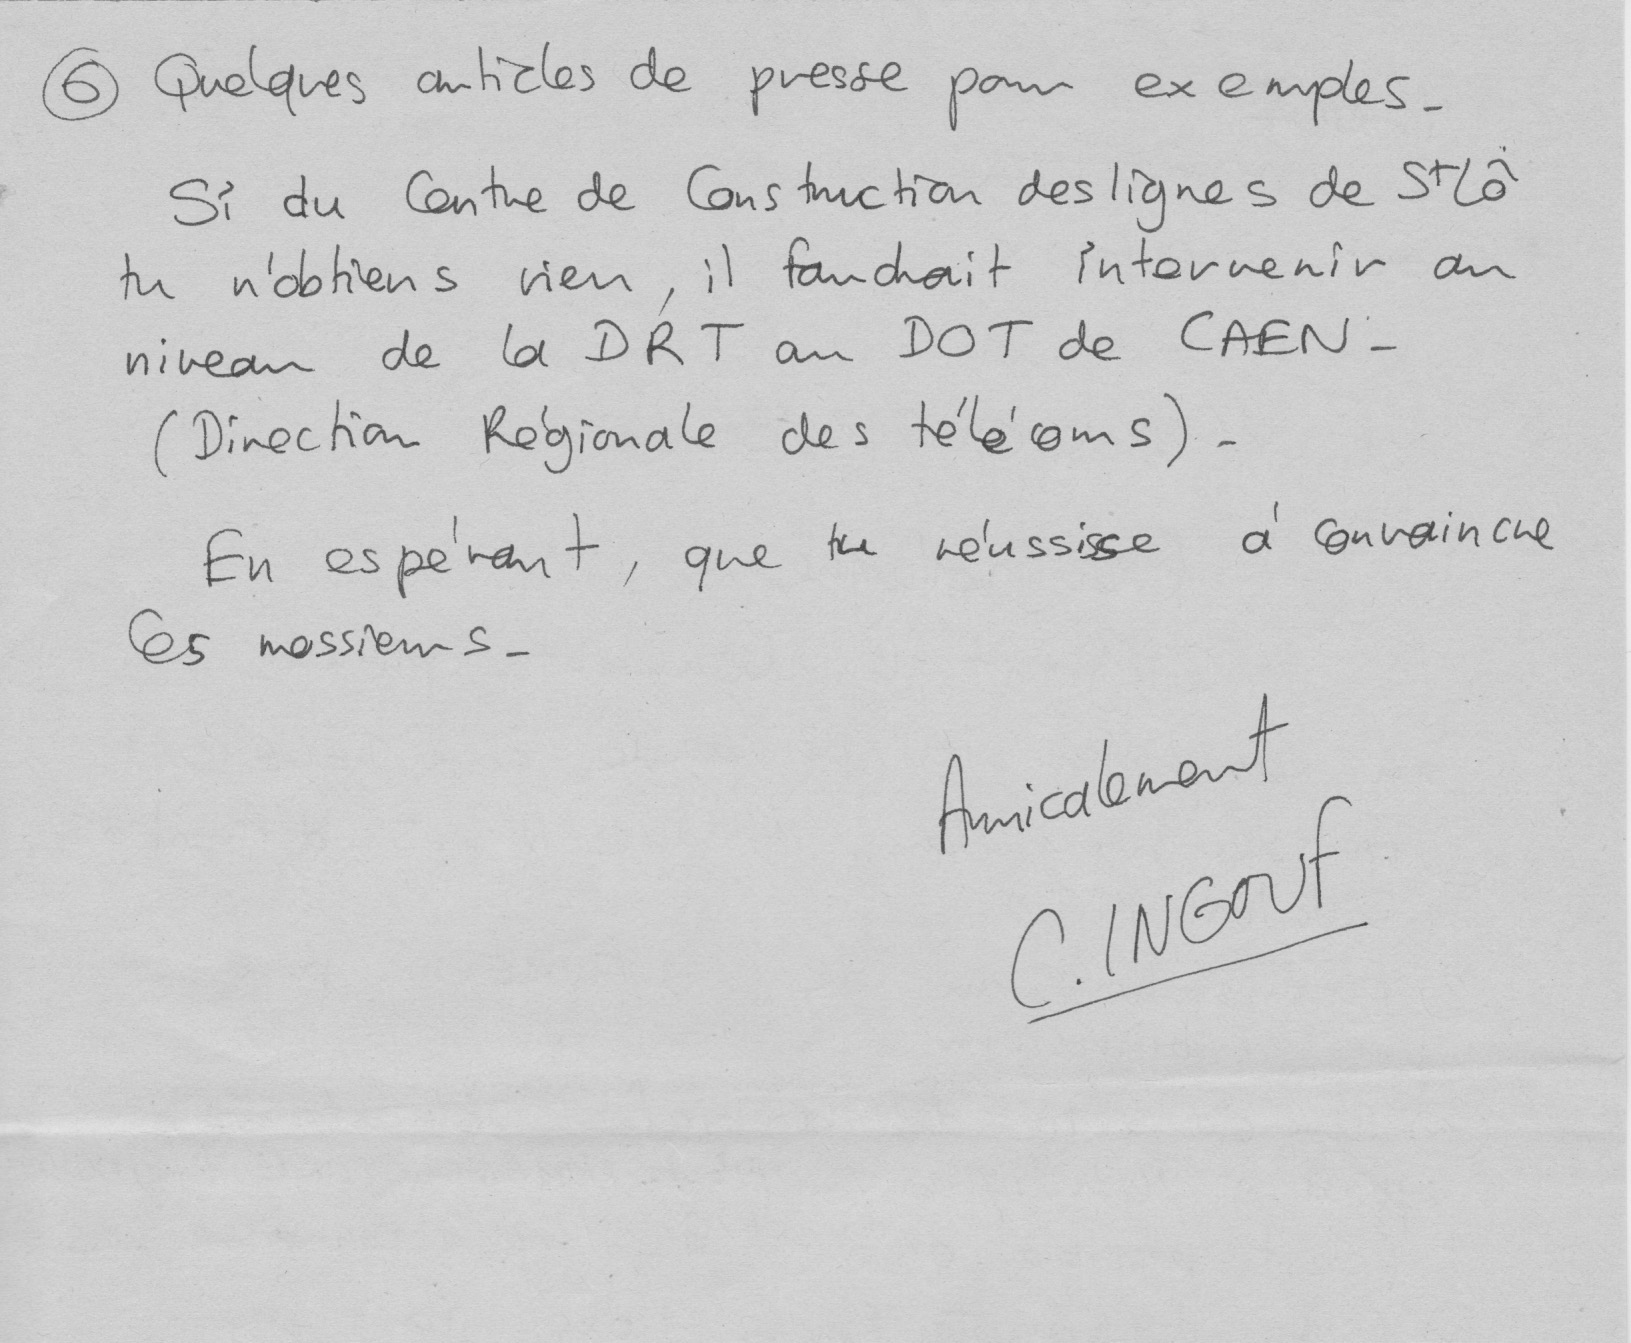 ⑥ Quelques articles de presse pour exemples_
Si du Centre de Construction des lignes de St Lô
tu n'obtiens rien, il faudrait intervenir au
niveau de la DRT au DOT de CAEN_
(Direction Régionale des télécoms)_
En espérant, que tu réussisse à convaincre
Ces messieurs_
Amicalement
C. INGOUF